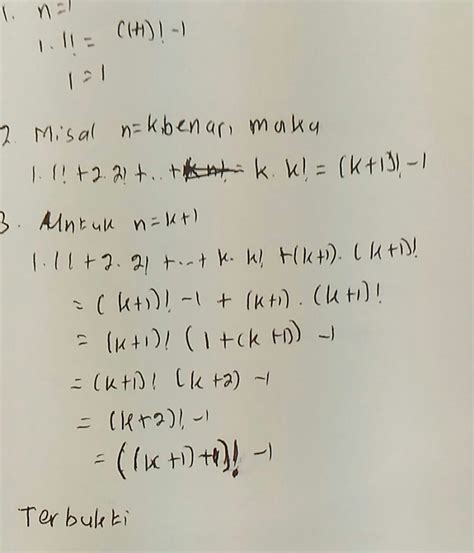 1. n=1
1.1! = (1+1)! -1
1=1
2. Misal n=k benar, maka
1.1! + 2.2! + .. + k.k! = (k+1)! -1
3. Untuk n=k+1
1.1! + 2.2! + ... + k.k! + (k+1).(k+1)!
= (k+1)! -1 + (k+1).(k+1)!
= (k+1)! (1+(k+1)) -1
= (k+1)! (k+2) -1
= (k+2)! -1
= ((k+1)+1)! -1
Terbukti